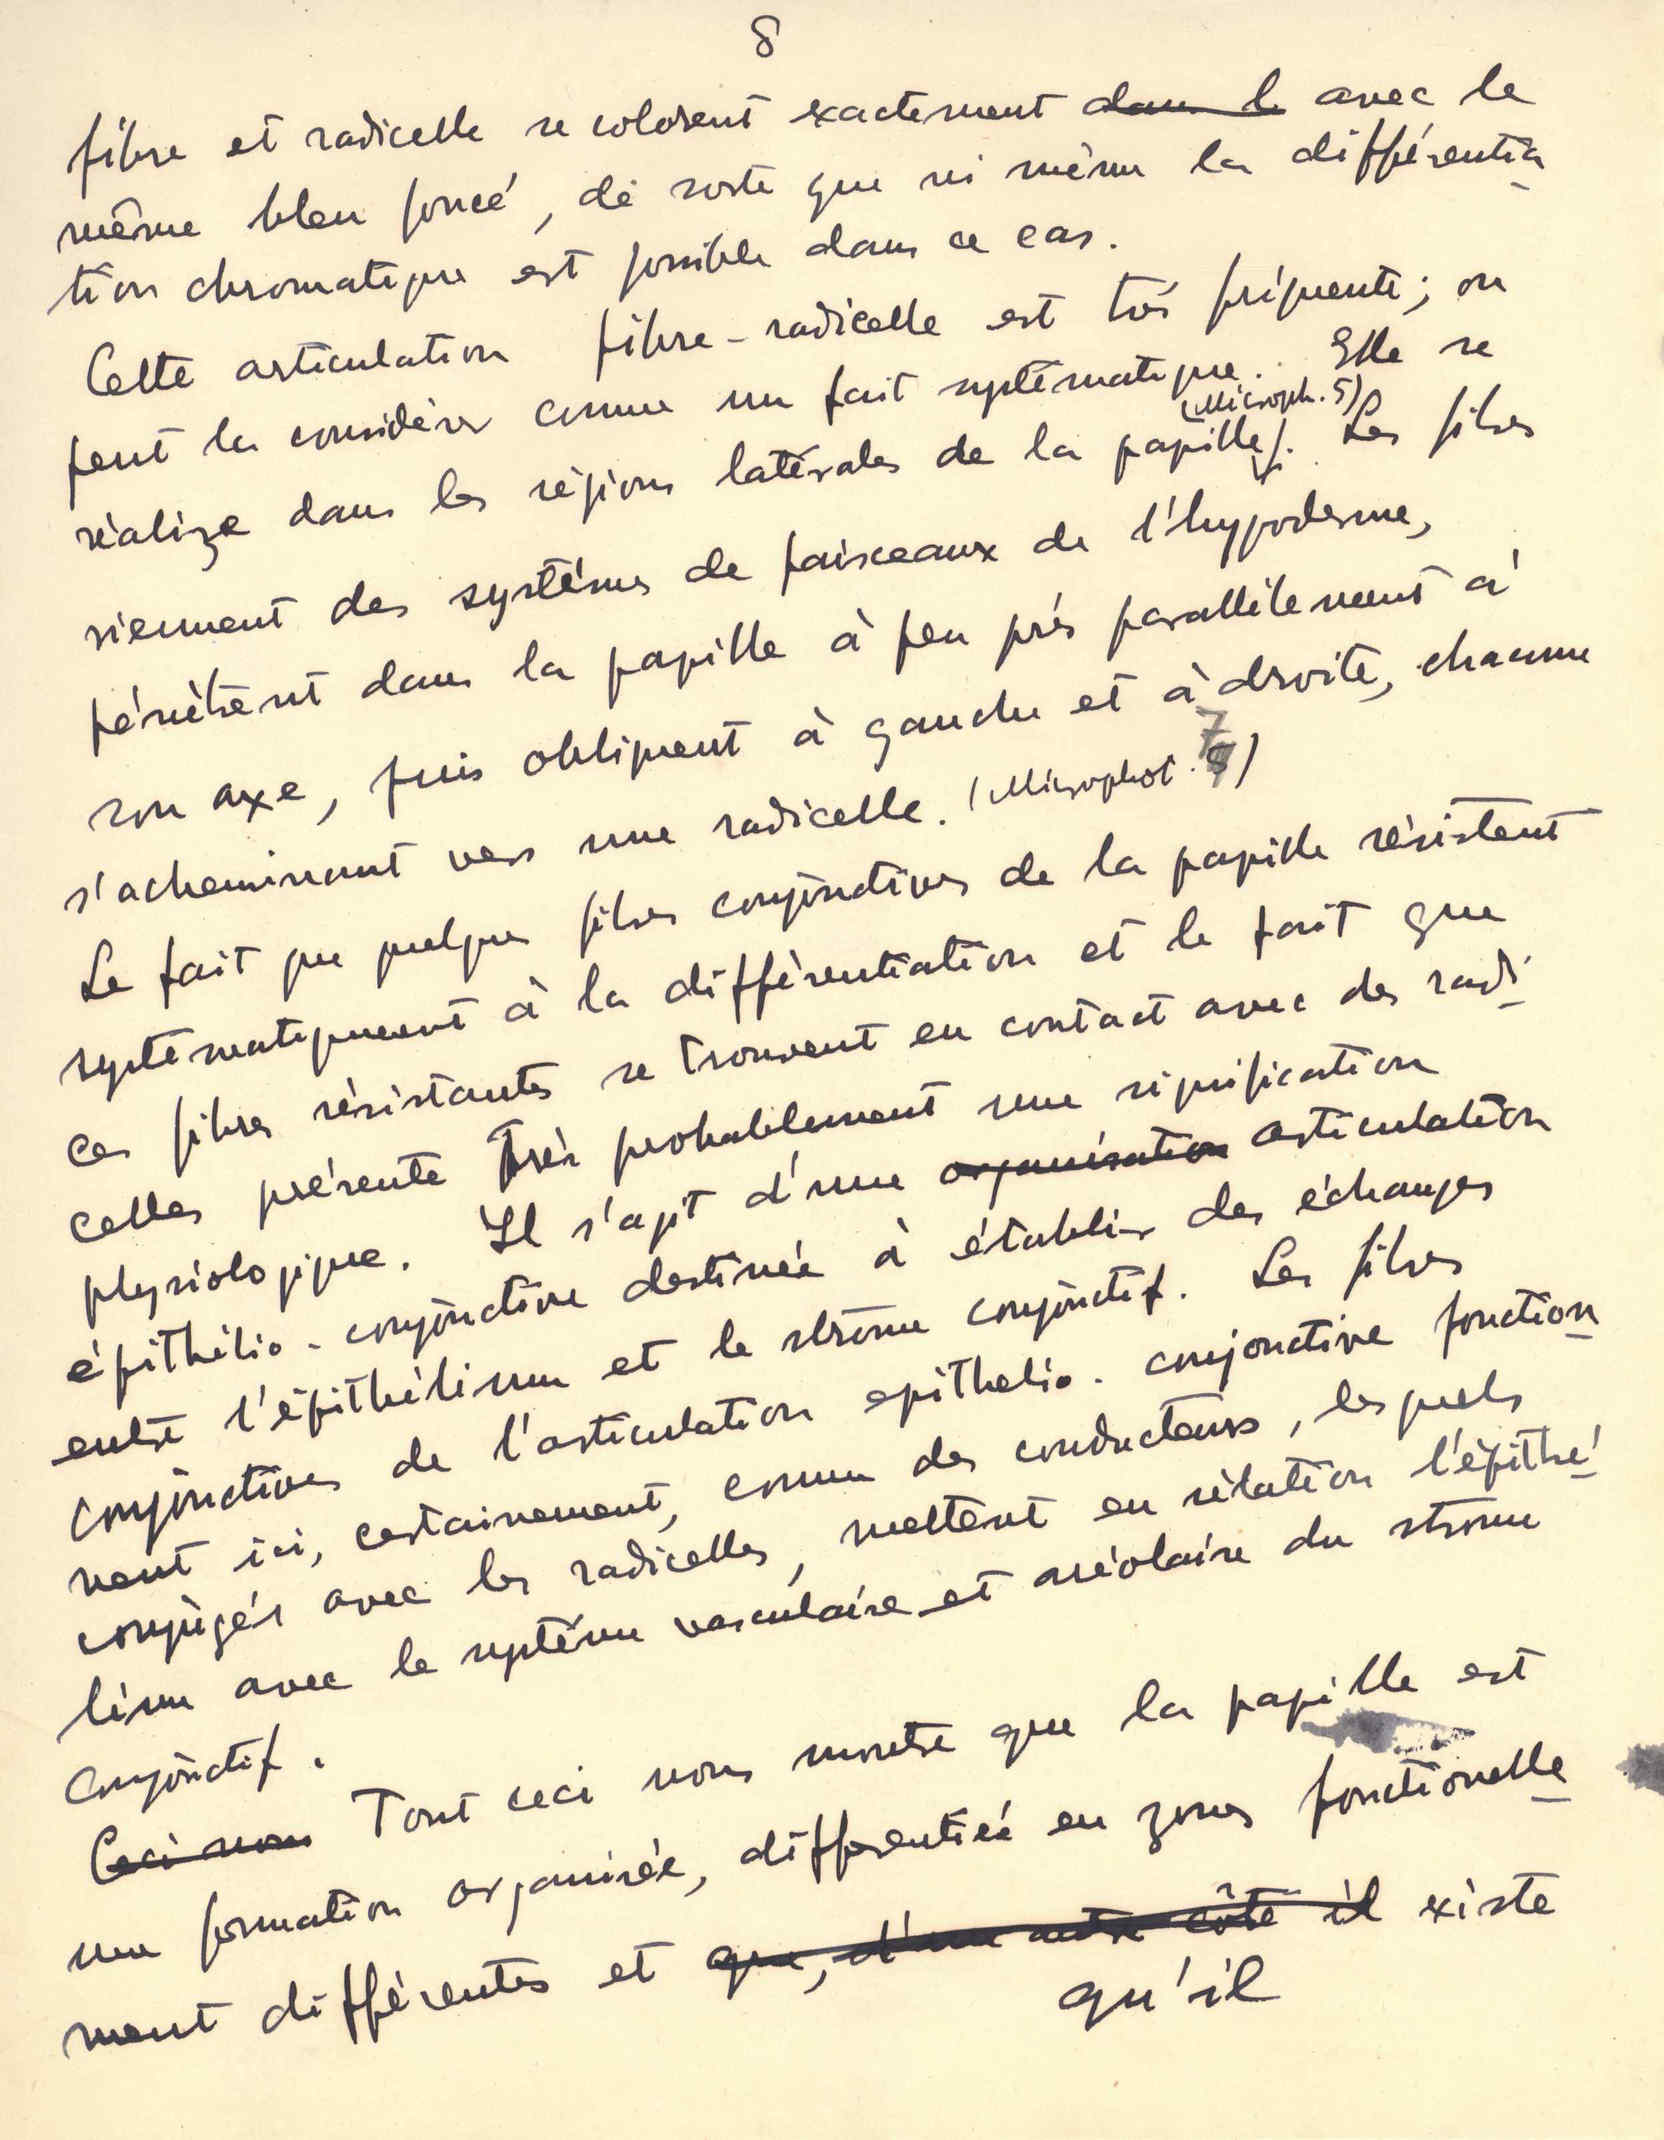 8
fibre et radicelle se colorent exactement dans le avec le
même bleu foncé, de sorte que ni même la différentia
tion chromatique est possible dans ce cas.
Cette articulation fibre-radicelle est très fréquente; on
peut la considérer comme un fait systématique. Elle se
(Microph. 5)
réalize dans les régions latérales de la papille. Les fibres
viennent des systèmes de faisceaux de l'hypoderme,
pénètrent dans la papille à peu près parallèlement à
son axe, puis obliquent à gauche et à droite, chacune
s'acheminant vers une radicelle. (Microphot. 7)
Le fait que quelques fibres conjonctives de la papille résistent
systématiquement à la différentiation et le fait que
ces fibres résistantes se trouvent en contact avec des radi
celles présente très probablement une signification
physiologique. Il s'agit d'une organisation articulation
épithélio-conjonctive destinée à établir des échanges
entre l'épithélium et le stroma conjonctif. Les fibres
conjonctives de l'articulation epithelio-conjonctive fonction
nent ici, certainement, comme des conducteurs, lesquels
conjugés avec les radicelles, mettent en rélation l'épithé
lium avec le système vasculaire et aréolaire du stroma
conjonctif.
Ceci nous Tout ceci nous montre que la papille est
une formation organisée, différentiée en zones fonctionelle
ment différentes et que, d'une autre côté il existe
qu'il